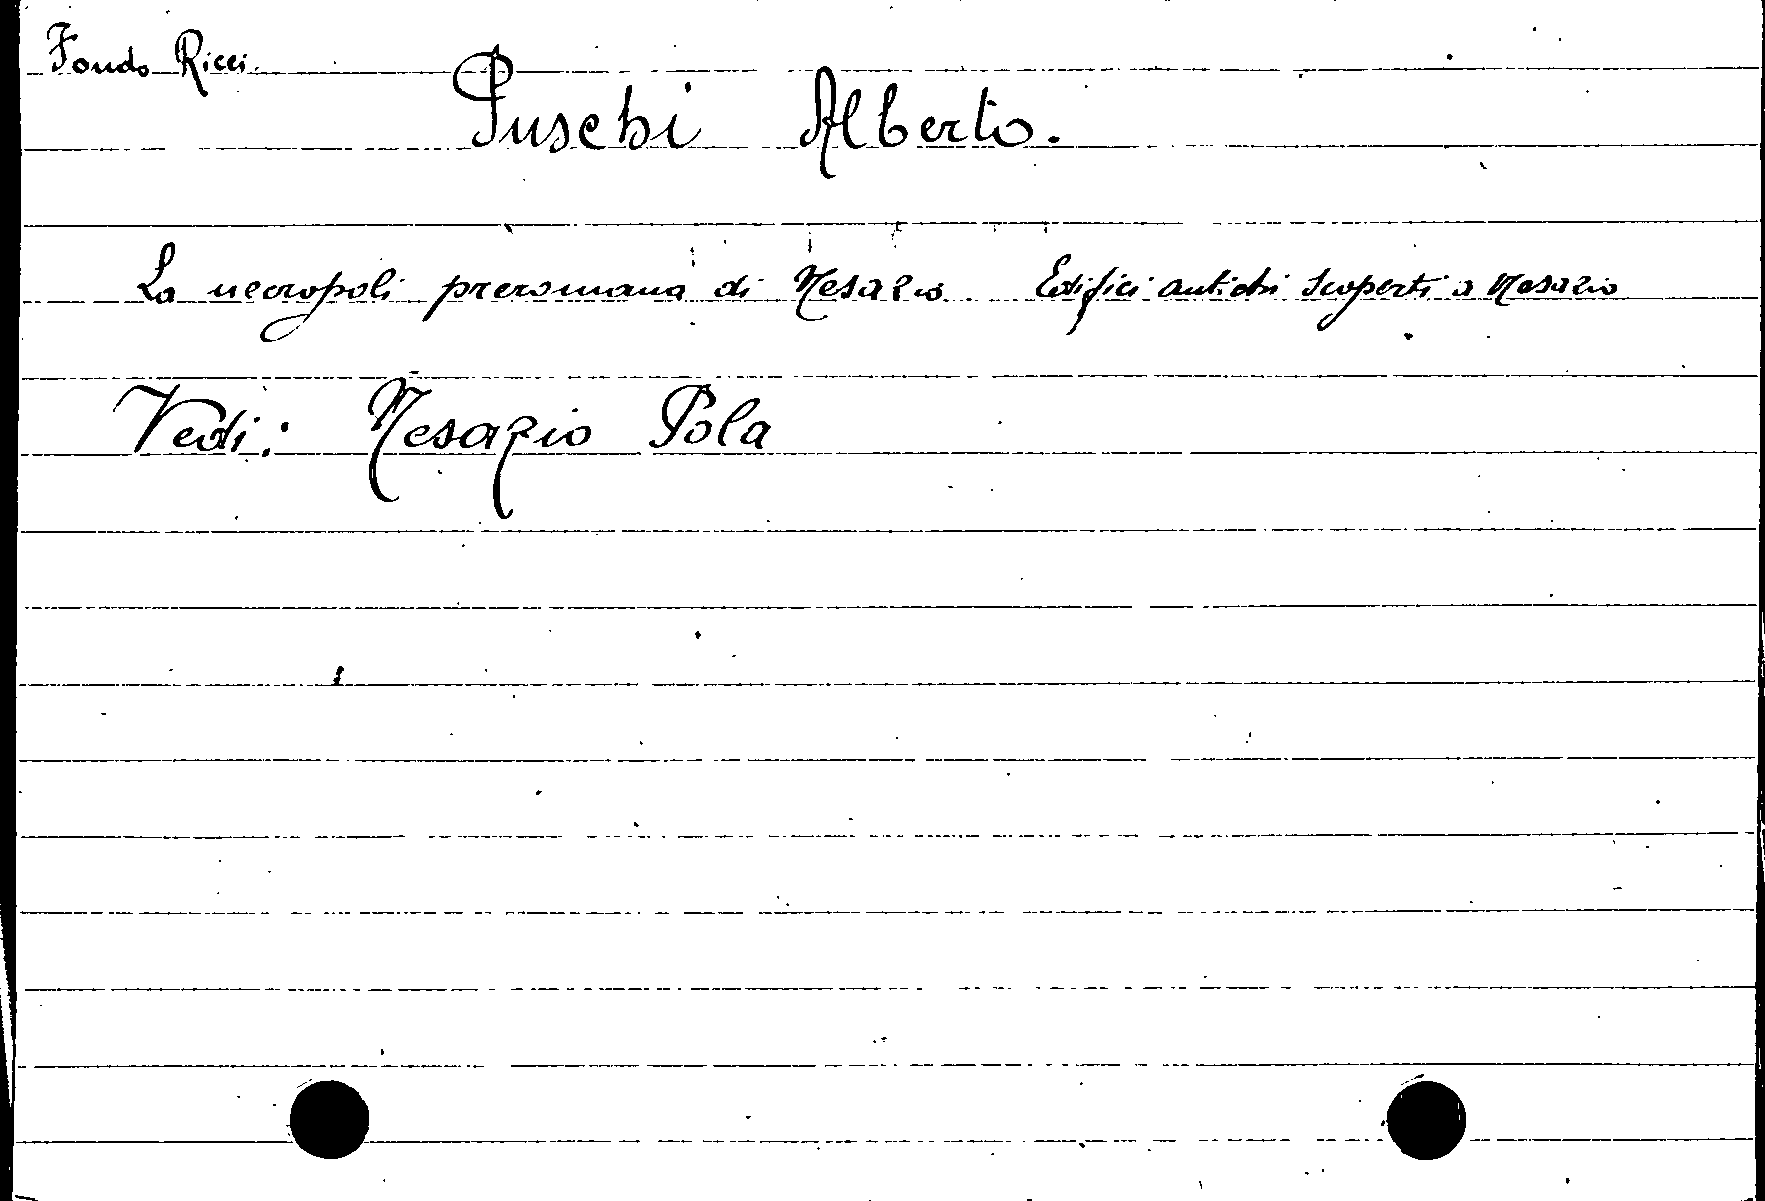 Fondo Ricci.
Puschi Alberto.
La necropoli preromana di Nesazio. Edifici antichi scoperti a Nesazio
Vedi: Nesazio Pola